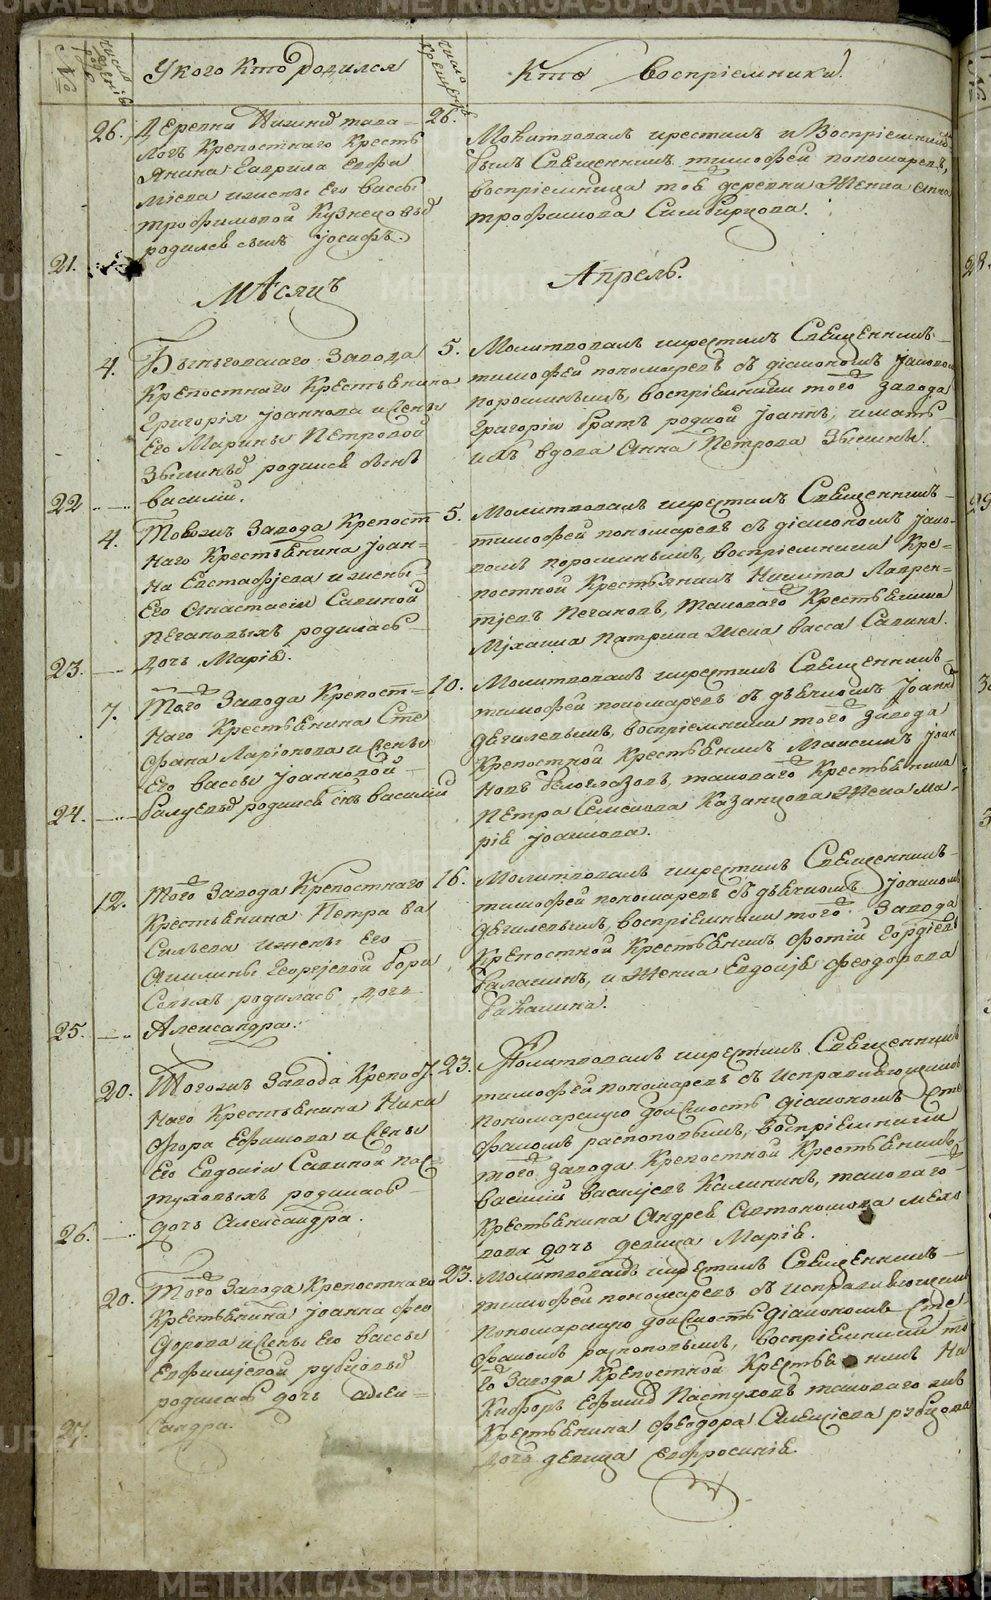 №
число рожденія
У кого кто родился
число крещенія
Кто воспріемники.
26.
Деревни
логъ крепостнаго кресть
янина Гаврила Евфи
міева и жены Его Вассы
трофимовой Кузнецовыхъ
родился сынъ Іосифъ.
21.
26.
Молитвовалъ и крестилъ и Воспріемникомъ
былъ Священникъ тимофей пономаревъ,
воспріемница той деревни Жена Анна
трофимова Симбирцова.
Мѣсяцъ
Апрель.
4.
Быньговскаго Завода
Крепостнаго Крестьянина
Григорія Іоаннова и жены
Его Марины Петровой
родился сынъ
василій.
22
5.
Молитвовалъ и крестилъ Священникъ
тимофей пономаревъ съ діакономъ Іаковомъ
порошинымъ, воспріемники того завода
Григорій братъ родной Іоаннъ, и мать
ихъ вдова Анна Петрова
4.
Тогожъ Завода Крепост
наго Крестьянина Іоан-
на Евстафіева и жены
Его Анастасіи Савиной
Пегановыхъ родилась
дочь Марія.
23.
5.
Молитвовалъ и крестилъ Священникъ
тимофей пономаревъ съ діакономъ Іако-
вомъ порошинымъ, воспріемники Кре-
постной Крестьянинъ Никита Лаврен-
тіевъ Пегановъ, таковаго Крестьянина
Михаила Патрина жена Васса Савина.
7.
Того Завода Крепост-
наго Крестьянина Сте
фана Ларіонова и жены
Его вассы Іоанновой
родился сынъ василій
24.
10.
Молитвовалъ и крестилъ Священникъ
тимофей пономаревъ съ дьячкомъ Іоанномъ
Дягилевымъ, воспріемники того завода
Крепостной Крестьянинъ Максимъ Іоан
новъ Белоглазовъ, таковаго Крестьянина
Петра Семенова Казанцова жена Ма-
рія Іоаннова.
12.
Того Завода Крепостнаго
Крестьянина Петра ва
сильева и жены Его
Акилины Георгіевой Бори
совыхъ родилась дочь
Александра.
25.
16.
Молитвовалъ и крестилъ Священникъ
тимофей пономаревъ съ дьячкомъ Іоанномъ
Дягилевымъ, воспріемники того Завода
Крепостной Крестьянинъ Фотій Гордіевъ
Балакинъ, и жена Евдокія Феодорова
Бакакина.
20.
Тогожъ Завода Крепост
наго Крестьянина Ники
фора Ефимова и жены
Его Евдокіи Савиной Пас
туховыхъ родилась
дочь Александра.
26.
23.
Молитвовалъ и крестилъ Священникъ
тимофей пономаревъ съ исправляющимъ
пономарскую должность діакономъ Сте
фаномъ распоповымъ, воспріемники
того Завода Крепостной Крестьянинъ
василій васильевъ Калининъ, таковаго
Крестьянина Андрея Автономова мехо
дочь девица Марія.
20.
Того Завода Крепостнаго
Крестьянина Іоанна Фео
дорова и жены его вассы
Евфиміевой рубцовыхъ
родилась дочь Алек-
сандра.
27.
23.
Молитвовалъ и крестилъ Священникъ
тимофей пономаревъ съ исправляющимъ
пономарскую должность діакономъ Сте
фаномъ распоповымъ, воспріемники то
го Завода Крепостной Крестьянинъ Ни
кифоръ Ефимовъ Пастуховъ таковаго жъ
Крестьянина Феодора Алексіева рубцова
дочь девица Евфросинія.
METRIKI.GASO-URAL.RU